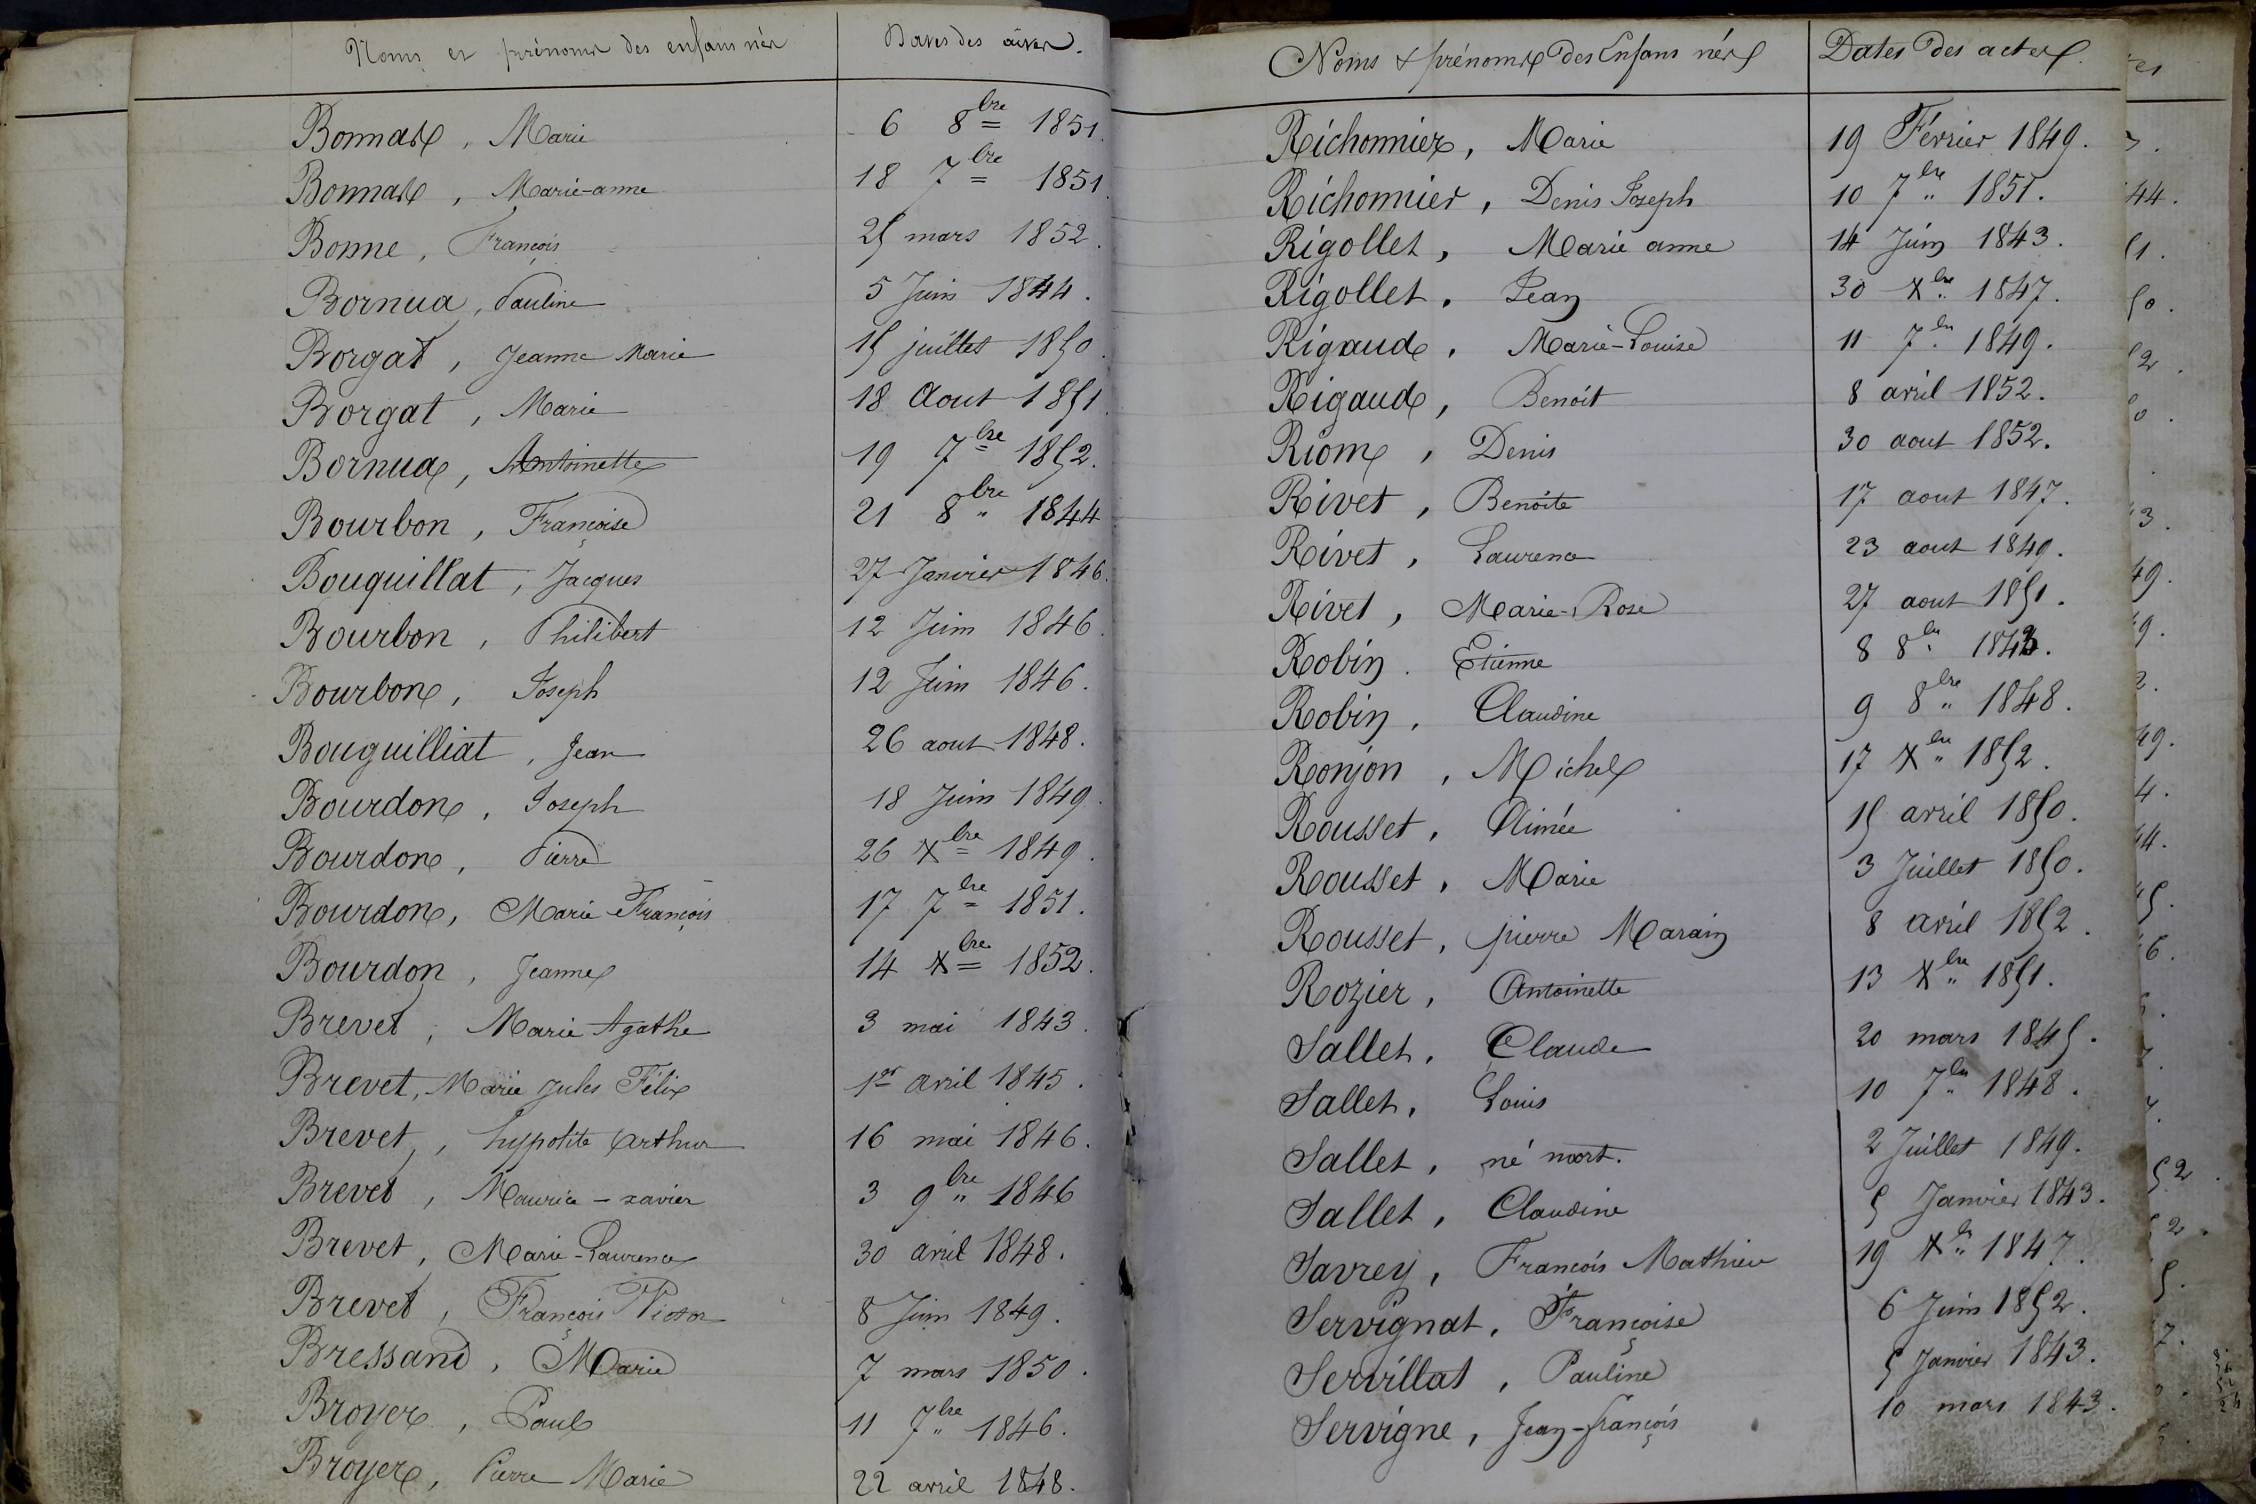 Noms et prénoms des enfans nés Dates des actes.
Bonnat, Marie 6 8bre 1851
Bonnat, Marie-anne 18 7bre 1851.
Bonne, François 25 mars 1852.
Bornua, Pauline 5 Juin 1844.
Borgat, Jeanne Marie 15 juillet 1850.
Borgat, Marie 18 Aout 1851
Bornua, Antoinette 19 7bre 1852.
Bourbon, Françoise 21 8bre 1844
Bouquillat, Jacques 27 Janvier 1846.
Bourbon, Philibert 12 Juin 1846.
Bourbon, Joseph 12 Juin 1846.
Bouquilliat, Jean 26 aout 1848.
Bourdon, Joseph 18 Juin 1849.
Bourdon, Pierre 26 Xbre 1849.
Bourdon, Marie François 17 7bre 1851.
Bourdon, Jeanne 14 Xbre 1852.
Brevet, Marie Agathe 3 mai 1843.
Brevet, Marie Jules Félix 1er avril 1845.
Brevet, hypolite arthur 16 mai 1846.
Brevet, Maurice-xavier 3 9bre 1846
Brevet, Marie-Laurence 30 avril 1848.
Brevet, François Victor 8 Juin 1849.
Bressand, Marie 7 mars 1850.
Broyer, Paul 11 7bre 1846.
Broyer, Pierre Marie 22 avril 1848.
Noms & prénoms des Enfans nés Dates des actes.
Richonnier, Marie 19 Février 1849.
Richonnier, Denis Joseph 10 7bre 1851.
Rigollet, Marie anne 14 Juin 1843.
Rigollet, Jean 30 Xbre 1847.
Rigaud, Marie-Louise 11 7bre 1849.
Rigaud, Benoît 8 avril 1852.
Riom, Denis 30 aout 1852.
Rivet, Benoîte 17 aout 1847.
Rivet, Laurence 23 aout 1849.
Rivet, Marie-Rose 27 aout 1851.
Robin. Etienne 8 8bre 1843.
Robin, Claudine 9 8bre 1848.
Ronjon, Michel 17 Xbre 1852.
Rousset, Aimée 15 avril 1850.
Rousset, Marie 3 Juillet 1850.
Rousset, pierre Marain 8 avril 1852.
Rozier, Antoinette 13 Xbre 1851.
Sallet, Claude 20 mars 1845.
Sallet, Louis 10 7bre 1848.
Sallet, né mort. 2 Juillet 1849.
Sallet, Claudine 5 Janvier 1843.
Savrey, François Mathieu 19 Xbre 1847.
Servignat, Françoise 6 Juin 1852.
Servillat, Pauline 5 Janvier 1843.
Servigne, Jean-françois 10 mars 1843.